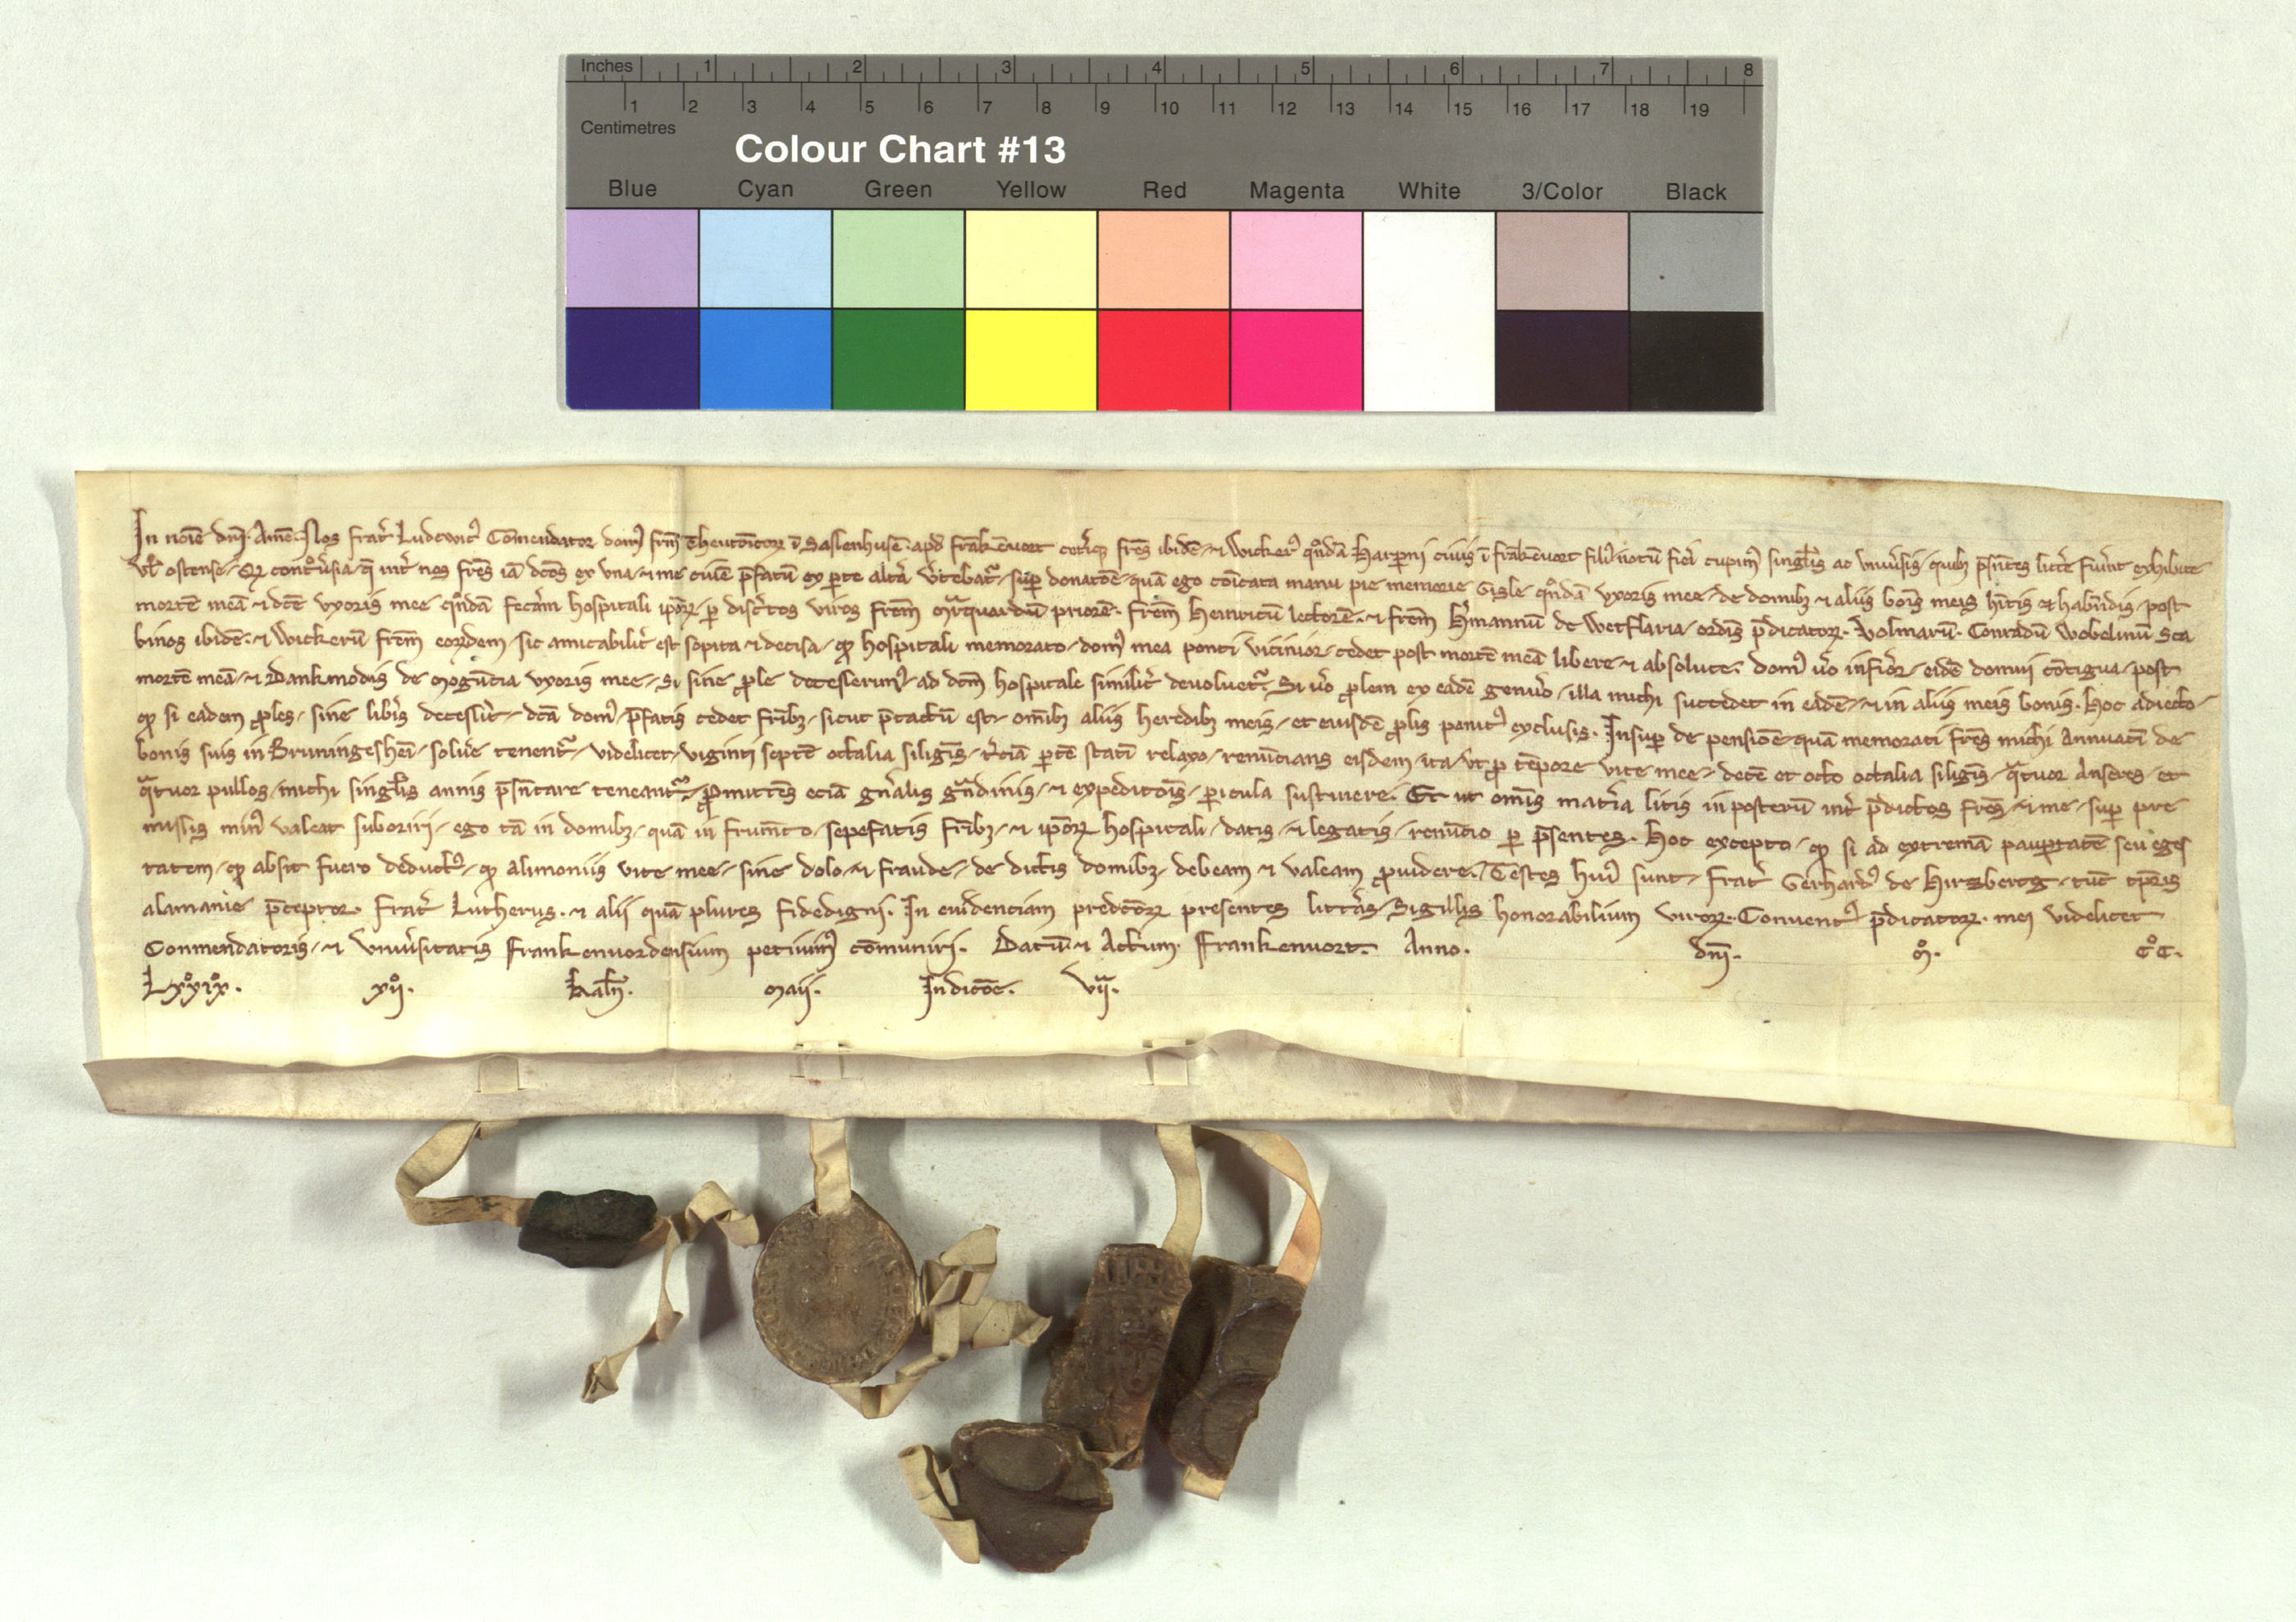 Inches 1 2 3 4 5 6 7 8
1 2 3 4 5 6 7 8 9 10 11 12 13 14 15 16 17 18 19
Centimetres
Colour Chart #13
Blue Cyan Green Yellow Red Magenta White 3/Color Black
In noīe dn̄i. Amē. Nos frat͛ Ludewicꝰ Cōmendator domꝰ frm̄ Theutōicoꝝ ī Saslenhusē. apđ frākēuort cet͛iqꝫ frēs ibidē. ⁊ Wickerꝰ qͦndā Harpernī ciuis ī frākēuort filiꝰ notū fieri cupimꝰ singl̄is ac vniu͛sis quibꝫ p̄sn̄tes litt͛e fu͛int exhibite
vl̓ ostense. Qꝫ cont͛ou͛sia q̄ int͛ nos frēs iā dc̄os ex vna ⁊ me ciuē p̄fatū ex ꝑte alt͛a v͛tebat͛ suꝑ donatōe quā ego cōicata manu pie memorie Gisle qͦndā vxoris mee de domibꝫ ⁊ aliis boīs meis hītis et habn̄dis post
mortē meā ⁊ dc̄e vxoris mee qͦndā fec͛am hospitali ip̄oꝝ ꝑ disc͛tos viros frēm Mͣrquardū priorē. frēm Heinricū lectorē. ⁊ frēm H͛mannū de Wetflaria ordīs p̄dicatoꝝ. Volmarū. Conradū Wobelinū Sca
binos ibidē. ⁊ Wickerū frēm eorꝝdem sic amicabilit͛ est sopita ⁊ decisa ꝙ hospitali memorato domꝰ mea ponti vicinior cedet post mortē meā libere ⁊ absolute. domꝰ v͛o infi͛or eidē domui cōtigua post
mortē meā ⁊ Dankmodis de Mogūcia vxoris mee si sine ꝓle decesserimꝰ ad dc̄m hospitale similit͛ deuoluet͛. Si v͛o ꝓlem ex eadē genu͛o illa michi succedet in eadē ⁊ in aliis meis bonis. Hoc adiecto
ꝙ si eadem ꝓles sine lib͛is decessit͛ dc̄a domꝰ p̄fatis cedet fr̄ibꝫ sicut p̄tactū est om̄ibꝫ aliis heredibꝫ meis et eiusdē ꝓlis penitꝰ exclusis. Insuꝑ de pensiōe quā memorati frēs michi Annuatī de
bonis suis in Bruningesheī solu͛e tenent͛ videlicet viginti septē octalia siligīs t͛ciā ꝑtē statī relaxo renūcians eisdem ita vt ꝓ tēpore vite mee decē et octo octalia siligīs qͣtuor Anseres et
qͣtuor pullos michi singl̄is annis p̄sn̄tare teneant͛ ꝓmittēs eciā gn̄alis gͣndinis ⁊ expeditōis ꝑicula sustinere. Et ut om̄is mat͛ia litis in posterū int͛ p̄dictos frēs ⁊ me suꝑ pre
missis minꝰ valeat suboriri ego tā in domibꝫ quā in frumt͛o sepefatis fr̄ibꝫ ⁊ ip̄oꝝ hospitali datis ⁊ legatis renūcio ꝑ p̄sentes. Hoc excepto ꝙ si ad extremā pauꝑtatē seu eges
tatem ꝙ absit fuero deductꝰ ꝙ alimoniis vite mee sine dolo ⁊ fraude de dictis domibꝫ debeam ⁊ valeam ꝓuidere. Testes huiꝰ sunt frat͛ Gerhardꝰ de Hirzbertg tūc tp̄ris
alamanie p̄ceptor. frat͛ Lutherus. ⁊ alii quā plures fidedigni. In euidenciam predc̄oꝝ presentes litt͛as Sigillis honorabilium viroꝝ. Conuentꝰ p̄dicatoꝝ. mei videlicet
Conmendatoris ⁊ vniu͛sitatis Frankenuordensium petiuimꝰ cōmuniri. Datū ⁊ Actum. Frankenuort. Anno. dn̄i. Mͦ. CͦC.
Lxxix. xii. kaln̄. Maii. Indictōe. viiͣ.